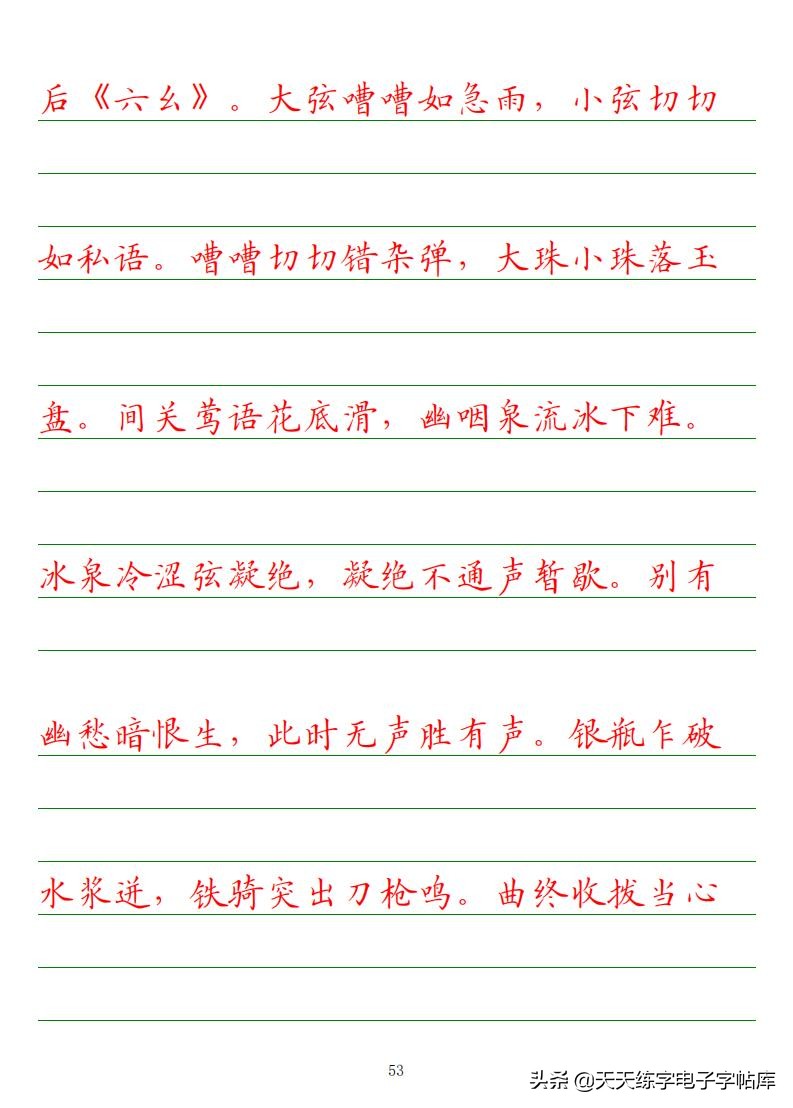 后《六幺》。大弦嘈嘈如急雨，小弦切切
如私语。嘈嘈切切错杂弹，大珠小珠落玉
盘。间关莺语花底滑，幽咽泉流冰下难。
冰泉冷涩弦凝绝，凝绝不通声暂歇。别有
幽愁暗恨生，此时无声胜有声。银瓶乍破
水浆迸，铁骑突出刀枪鸣。曲终收拨当心
53
头条 @天天练字电子字帖库